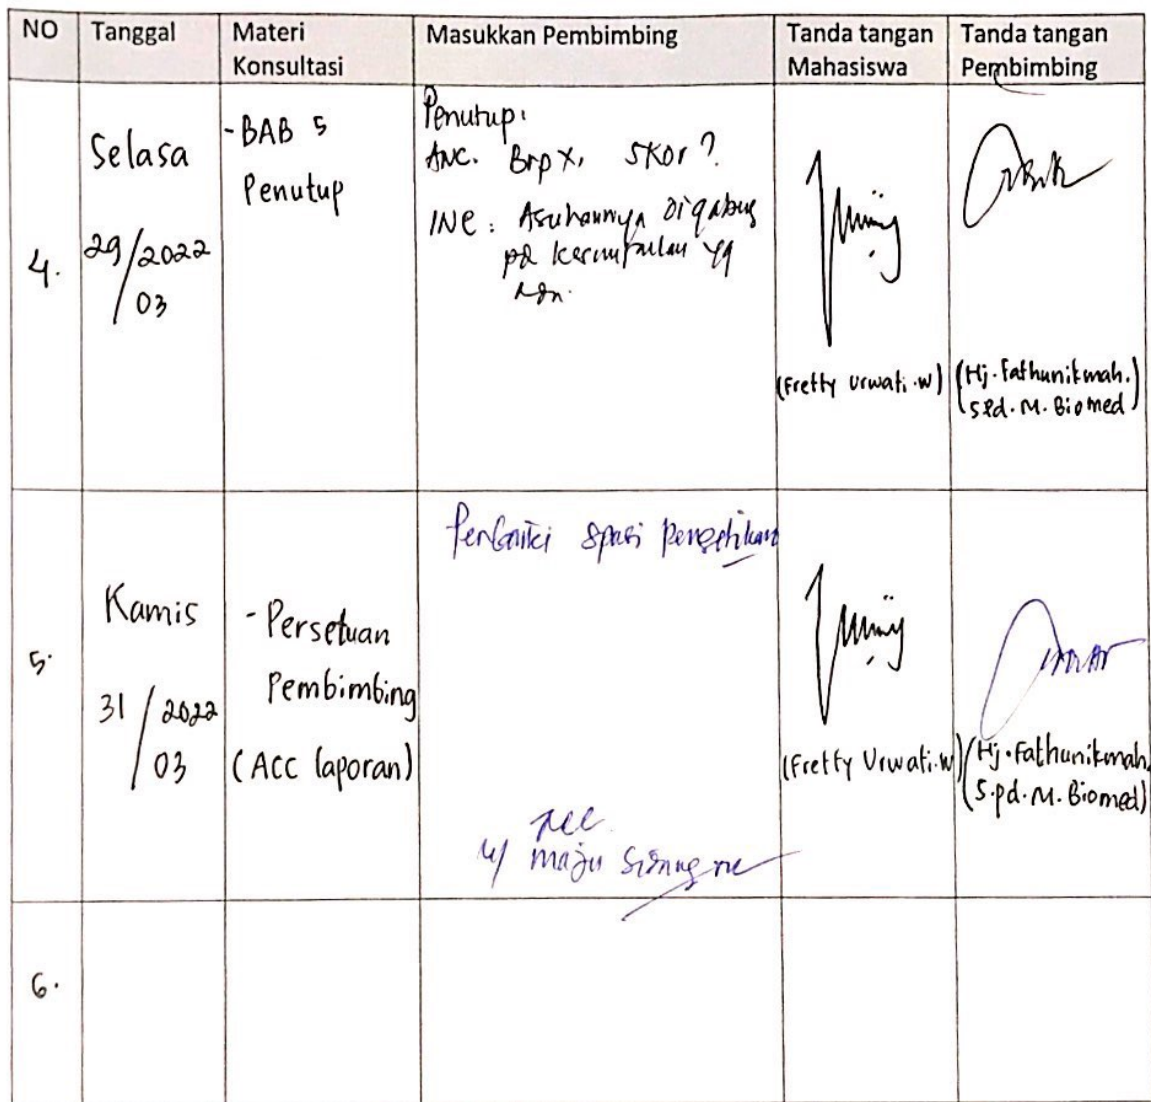 NO Tanggal Materi Konsultasi Masukkan Pembimbing Tanda tangan Mahasiswa Tanda tangan Pembimbing
4.
Selasa
29/2022
03
- BAB 5
Penutup
Penutup:
ANC. Brp X, SKor?
INC: Asuhannya Digabung
pd kesimpulan yg
(Fretty Urwati.W)
(Hj. Fathunikmah.
S.Pd. M. Biomed)
5.
Kamis
31/2022
03
- Persetuan
Pembimbing
(ACC laporan)
Perbaiki spasi pengetikan
ACC
u/ maju Sidang
(Fretty Urwati.W)
(Hj. Fathunikmah.
S.pd. M. Biomed)
6.